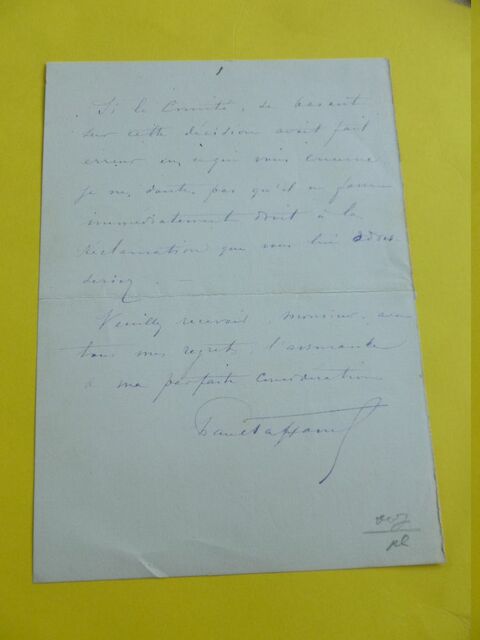 Si le Comité, se basant
sur cette décision avait fait
erreur en ce qui vous concerne
je ne doute pas qu'il ne fasse
immédiatement droit à la
réclamation que vous lui adres-
seriez. —
Veuillez recevoir, Monsieur, avec
tous mes regrets, l'assurance
de ma parfaite considération